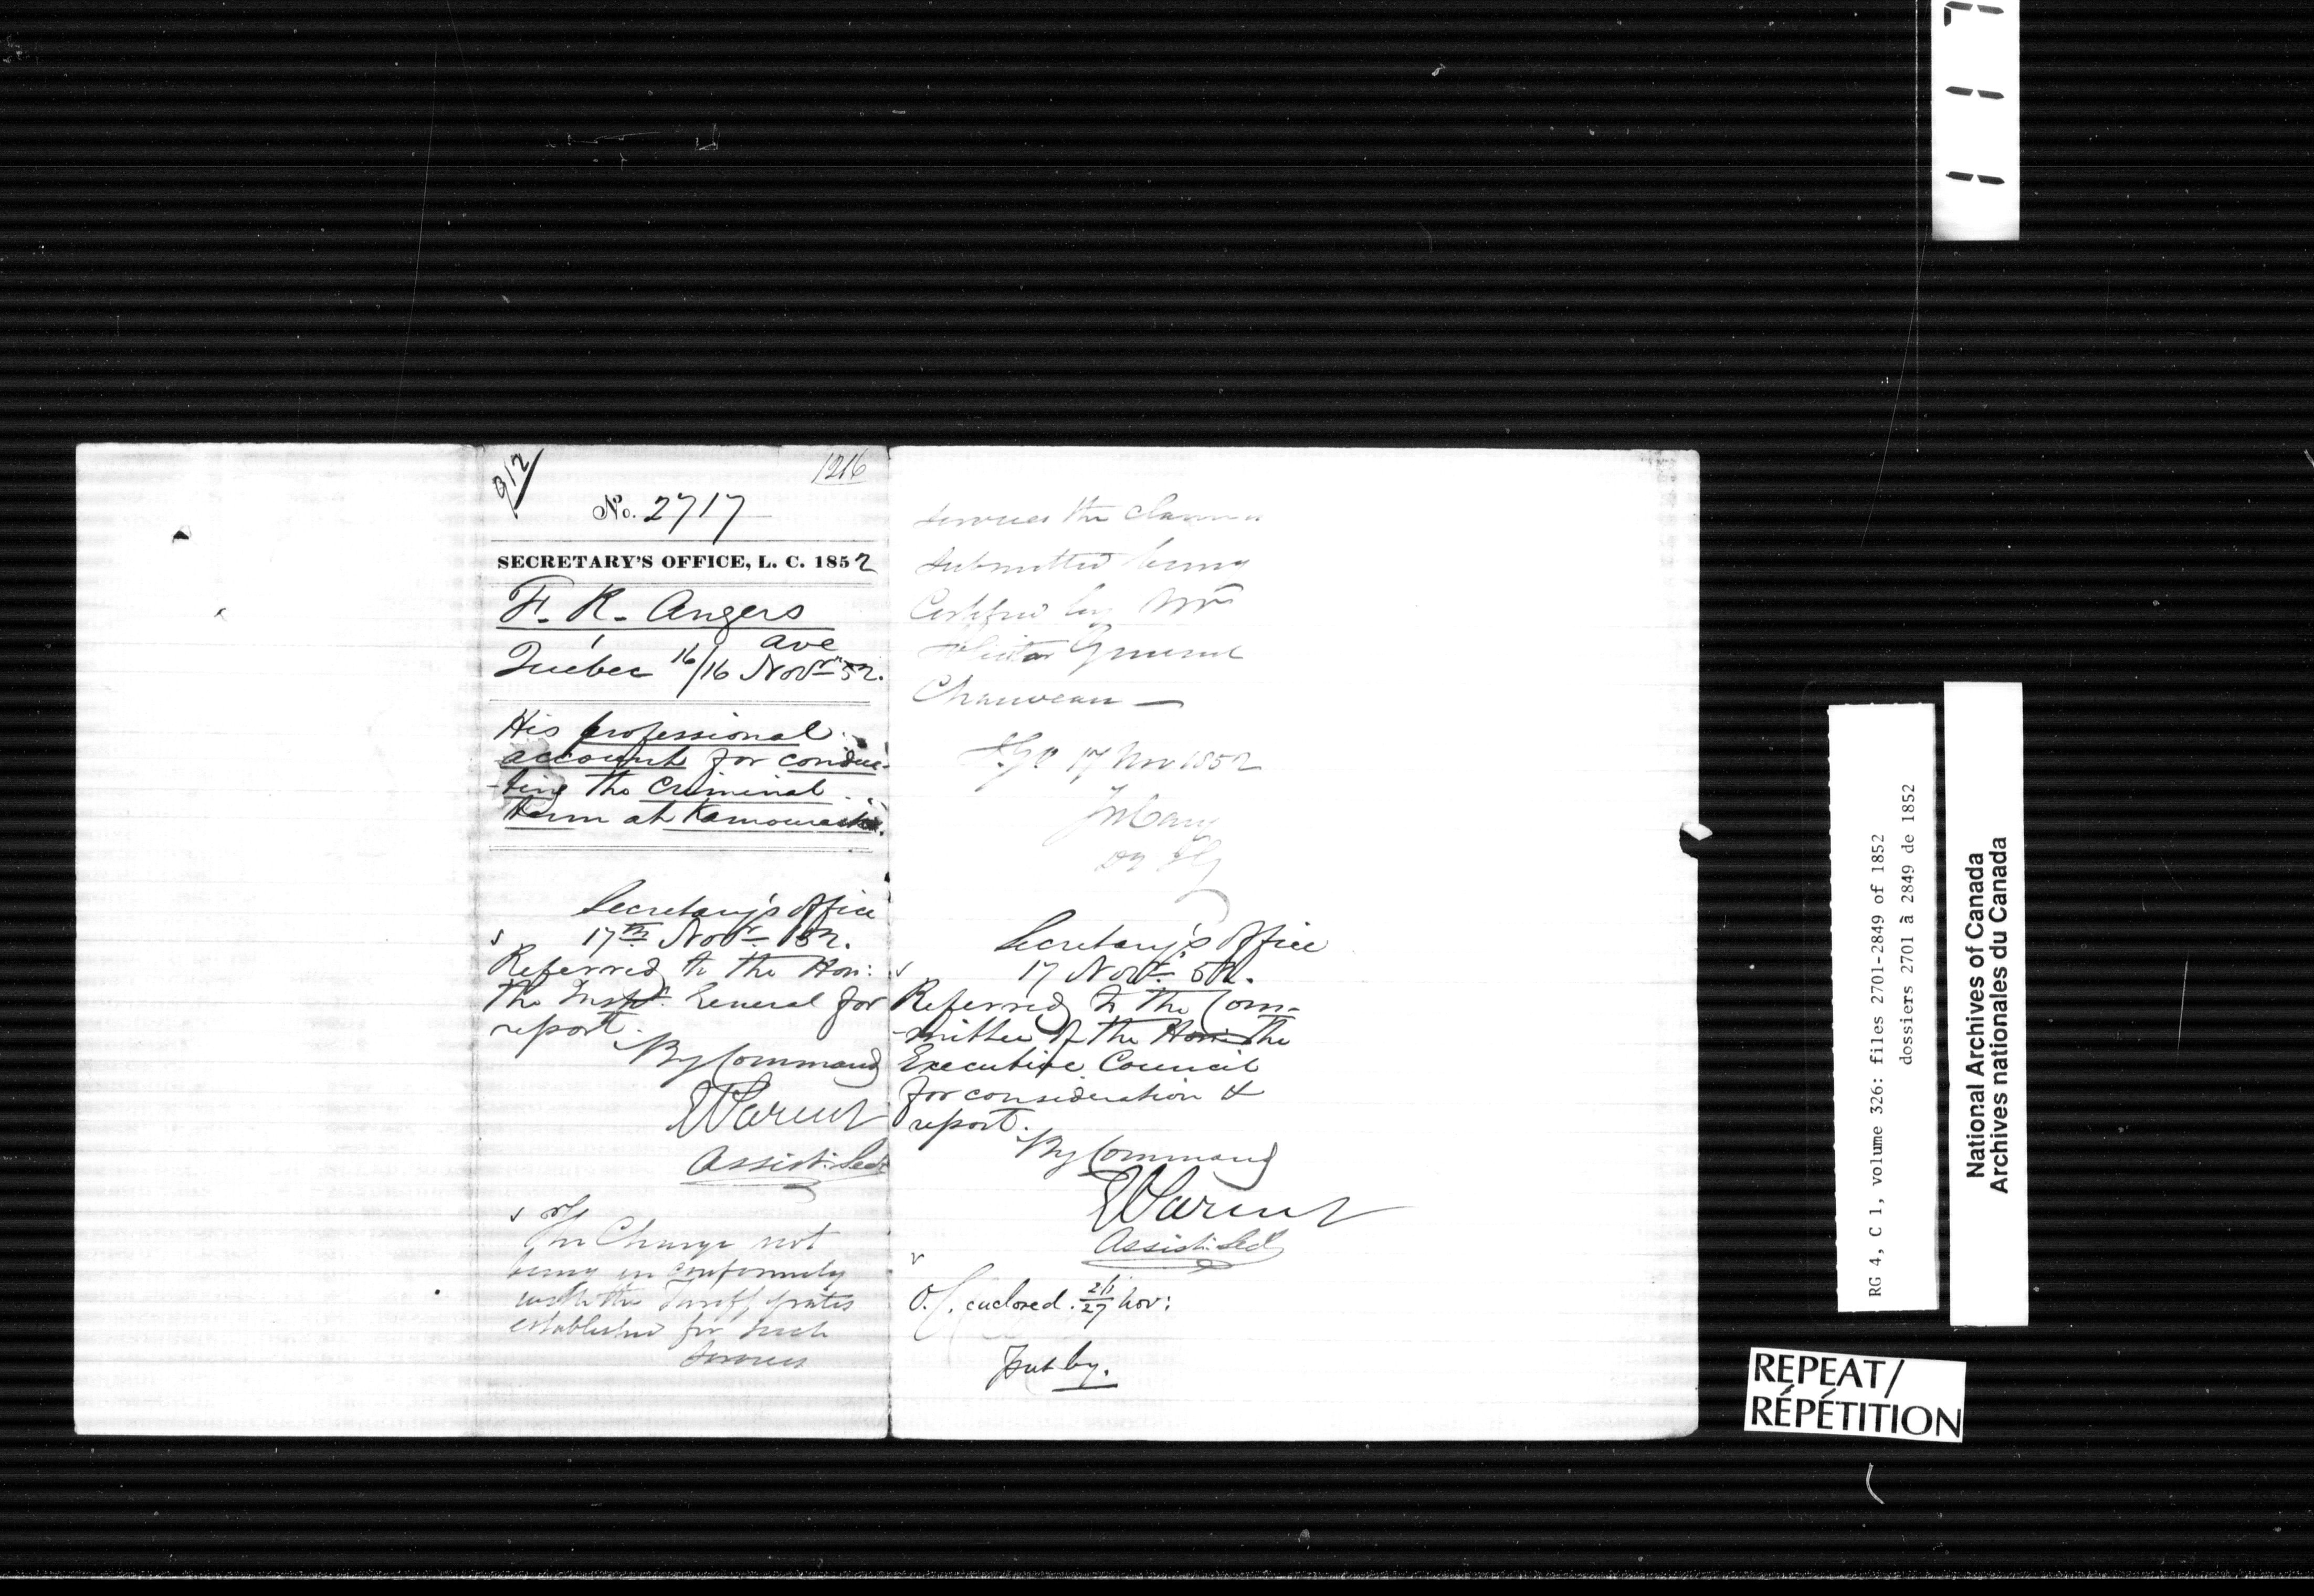 912
1216
No. 2717
SECRETARY'S OFFICE, L. C. 1852
F. R. Angers
Quebec 16/16 Novr 52.
His professional
account for conduc-
-ting the Criminal
term at Kamouraska.
Secretary's Office
17th Novr 52.
Referred to the Hon:
The Inspr. General for
report.
By Command
E Parent
Assist: Secy
The Charge not
being in conformity
with the Tariff of rates
established for such
services
services the claim is
submitted being
Certified by Mr
Solicitor General
Chauveau —
I.G.O 17 Nov 1852
Jos Cary
Dy IG
Secretary's Office
17 Novr 52.
Referred to the Com-
-mittee of the Hon: the
Executive Council
for consideration &
report.
By Command
E Parent
Assist: Secy
O.C. enclosed. 27 Nov:
Put by.
117
RG 4, C 1, volume 326: files 2701-2849 of 1852
dossiers 2701 à 2849 de 1852
National Archives of Canada
Archives nationales du Canada
REPEAT/
RÉPÉTITION